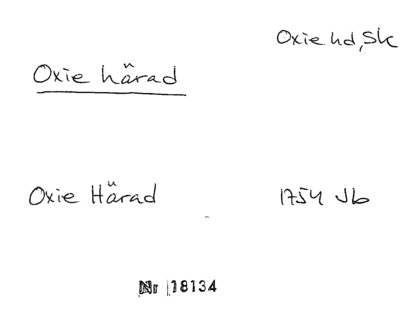 Oxie hd, Sk
Oxie härad
Oxie Härad 1754 Jb
Nr 18134